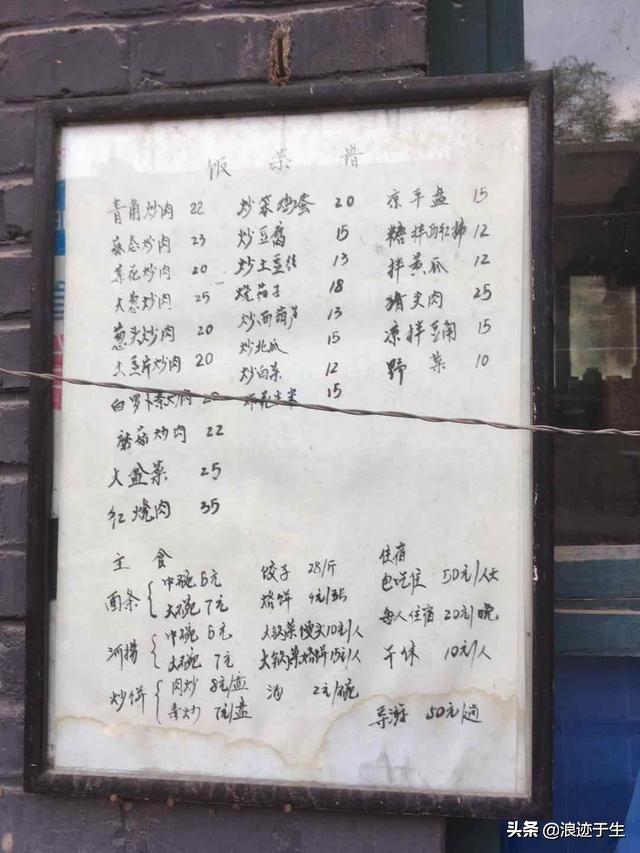 饭菜谱
青角炒肉 22 炒菜鸡蛋 20 凉平盘 15
蒜苔炒肉 23 炒豆腐 15 糖拌西红柿 12
菜花炒肉 20 炒土豆丝 13 拌黄瓜 12
大葱炒肉 25 烧茄子 18 猪头肉 25
葱头炒肉 20 炒西葫芦 13 凉拌豆角 15
土豆片炒肉 20 炒北瓜 15 野菜 10
白罗卜条炒肉 炒白菜 12
蘑菇炒肉 22 15
大盆菜 25
红烧肉 35
主食 住宿
面条 中碗 6元 饺子 28/斤 包吃住 50元/人天
大碗 7元 烙饼 每人住宿 20元/晚
河捞 中碗 6元 大锅菜馒头10元/人 午休 10元/人
大碗 7元 大锅菜烙饼15元/人
炒饼 肉炒 8元/盘 酒 2元/碗
素炒 7元/盘 导游 50元/趟
头条 @浪迹于生